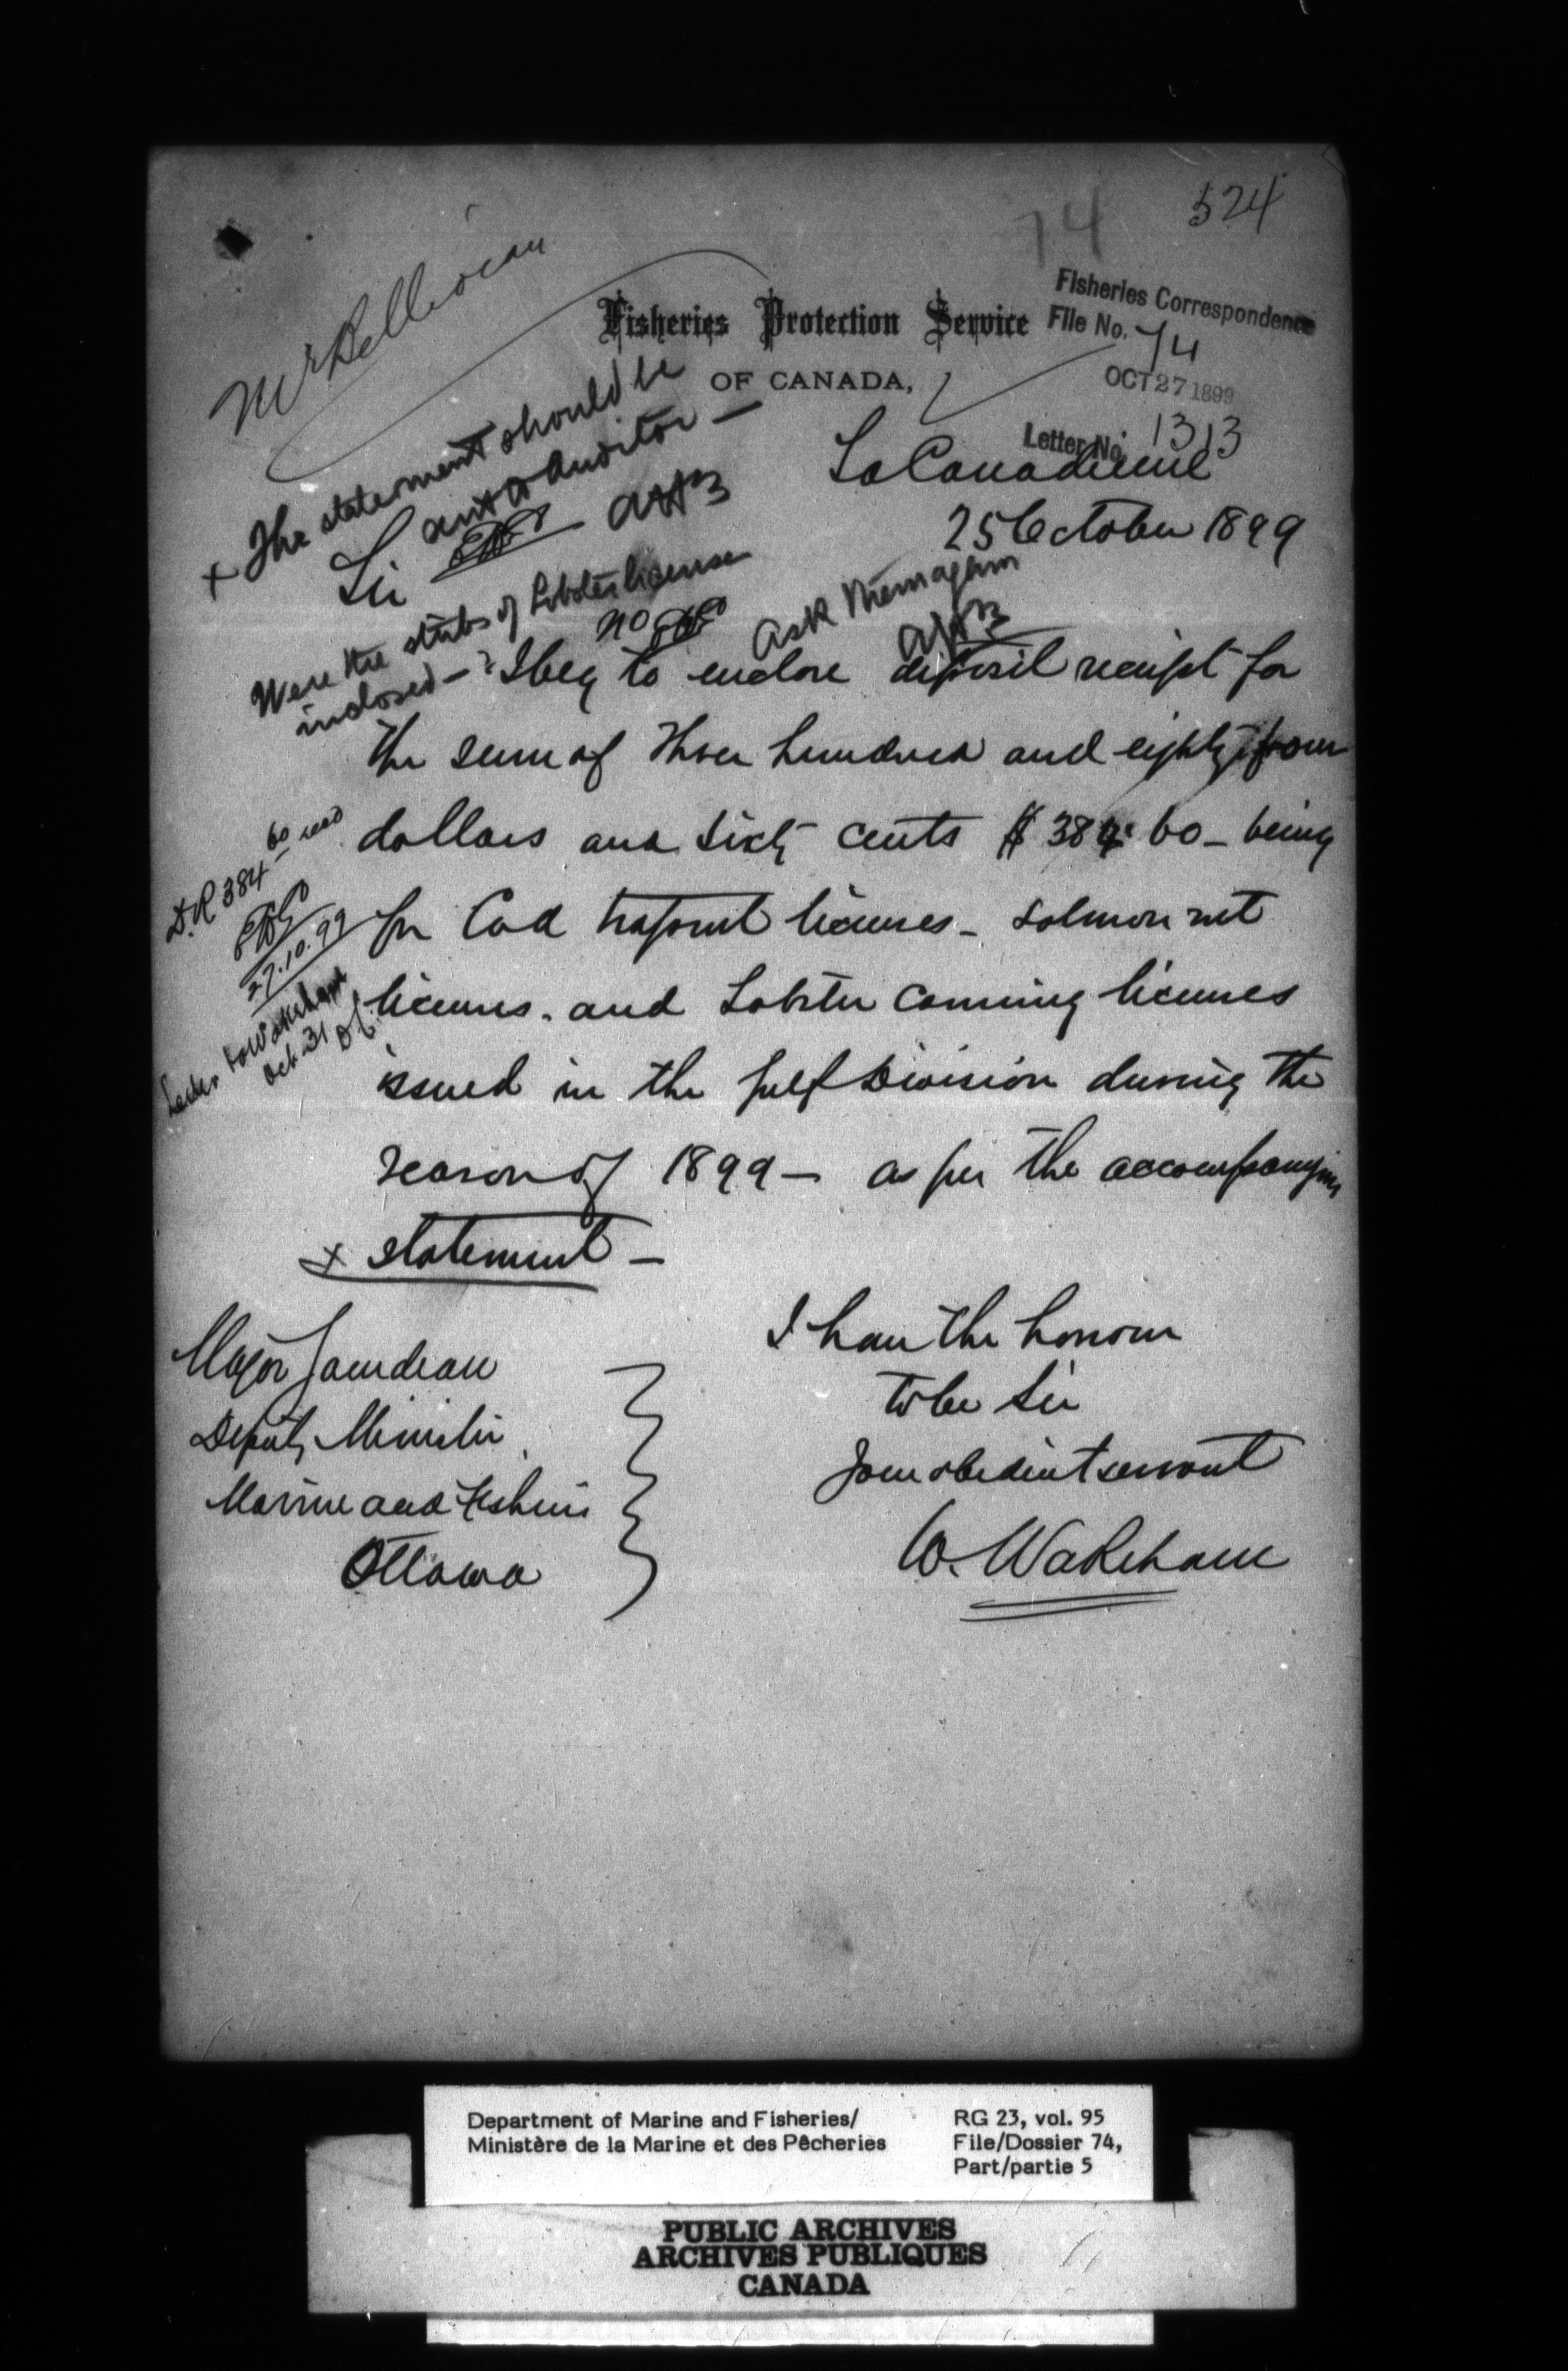 524
74
Mr Belliveau
Fisheries Protection Service
OF CANADA,
Fisheries Correspondence
File No. 74
OCT 27 1899
Letter No. 1313
La Canadienne
25 October 1899
x The statement should be
sent to Auditor —
Sir
Were the stubs of Lobster license
inclosed — ?
no
Ask them again
I beg to enclose deposit receipt for
the sum of three hundred and eighty four
dollars and sixty cents $ 384.60 — being
for Cod trapnet licenses — salmon net
licenses. and Lobster Canning licenses
issued in the Gulf Division during the
season of 1899 — as per the accompanying
x statement —
D.R 384 60
27.10.99
Letter to Wakeham
Oct. 31
I have the honour
to be Sir
Your obedient servant
W. Wakeham
Major Gourdeau
Deputy Minister
Marine and Fisheries
Ottawa
Department of Marine and Fisheries/
Ministère de la Marine et des Pêcheries
RG 23, vol. 95
File/Dossier 74,
Part/partie 5
PUBLIC ARCHIVES
ARCHIVES PUBLIQUES
CANADA